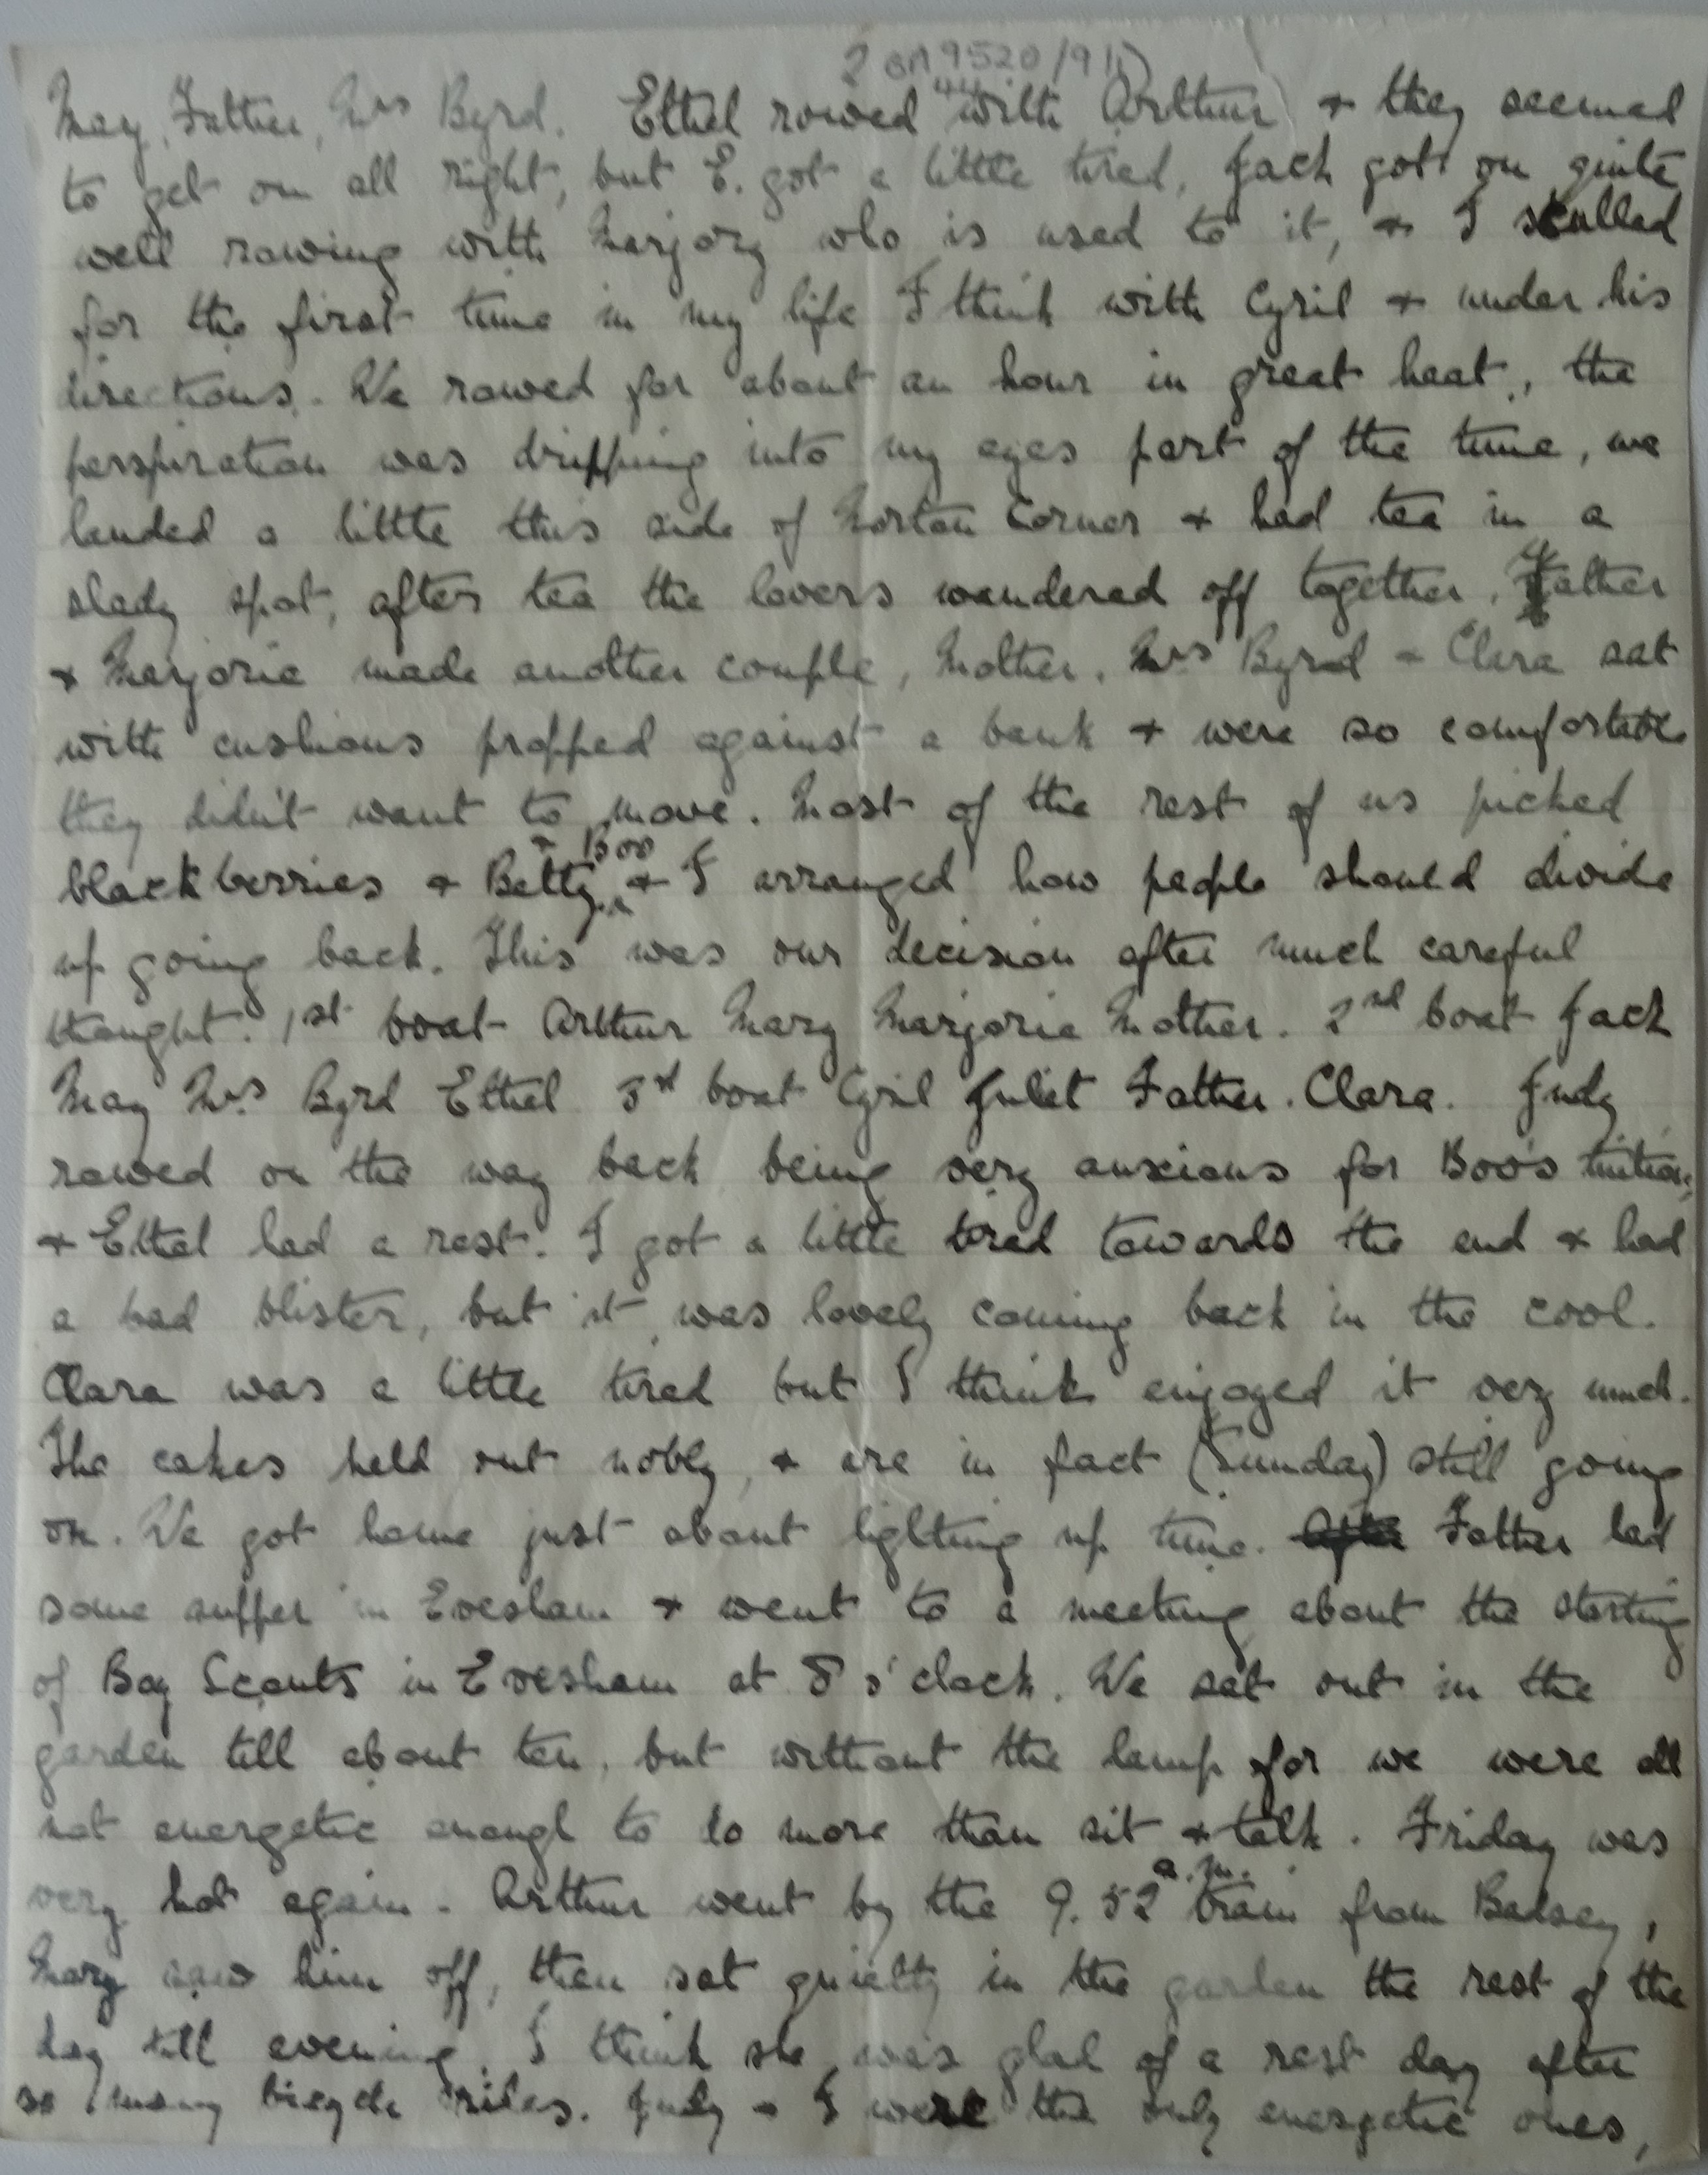 2 BA 9520/9 11)
44
May, Father, Mrs Byrd. Ethel rowed with Arthur + they seemed
to get on all right, but E. got a little tired, Jack got on quite
well rowing with Marjory who is used to it, + I sculled
for the first time in my life I think with Cyril + under his
directions. We rowed for about an hour in great heat, the
perspiration was dripping into my eyes part of the time, we
landed a little this side of Norton Corner + had tea in a
shady spot, after tea the lovers wandered off together, Father
+ Marjorie made another couple, Mother, Mrs Byrd + Clara sat
with cushions propped against a bank + were so comfortable
they didn't want to move. Most of the rest of us picked
+ Boo
blackberries + Betty + I arranged how people should divide
up going back. This was our decision after much careful
thought. 1st boat Arthur Mary Marjorie Mother. 2nd boat Jack
May Mrs Byrd Ethel 3rd boat Cyril Juliet Father. Clara. Judy
rowed on the way back being very anxious for Boo's tuition,
+ Ethel had a rest. I got a little tired towards the end + had
a bad blister, but it was lovely coming back in the cool.
Clara was a little tired but I think enjoyed it very much.
The cakes held out nobly, + are in fact (Sunday) still going
on. We got home just about lighting up time. After Father had
some supper in Evesham + went to a meeting about the starting
of Boy Scouts in Evesham at 8 o'clock. We sat out in the
garden till about ten, but without the lamp for we were all
not energetic enough to do more than sit + talk. Friday was
a.m.
very hot again. Arthur went by the 9.52 train from Badsey,
Mary saw him off, then sat quietly in the garden the rest of the
day till evening. I think she was glad of a rest day after
so many bicycle rides. Judy + I were the only energetic ones,